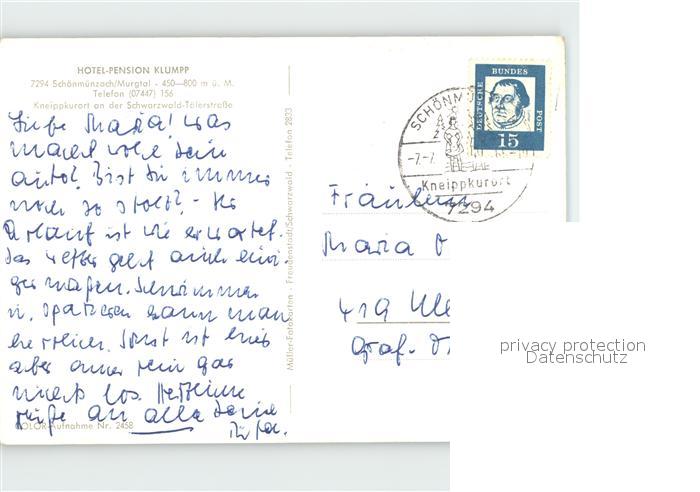 HOTEL-PENSION KLUMPP
7294 Schönmünzach/Murgtal - 450—800 m ü. M.
Telefon (07447) 156
Kneippkurort an der Schwarzwald-Tälerstraße
Liebe Maria! Was
macht wohl Dein
Auto? Bist Du immer
noch so stolz? - Der
Urlaub ist wie erwartet.
Das Wetter geht auch eini-
germaßen. Schwimmen
u. spazieren kann man
herrlich. Sonst ist hier
aber auch rein gar
nichts los. Herzliche
Grüße an alle Deine
COLOR-Aufnahme Nr. 2458
Müller-Fotokarten · Freudenstadt/Schwarzwald · Telefon 2833
SCHÖNMÜ
-7.-7.
Kneippkurort
7294
DEUTSCHE
BUNDES
POST
15
Fräulein
Maria
419 Kle
Graf-
privacy protection
Datenschutz